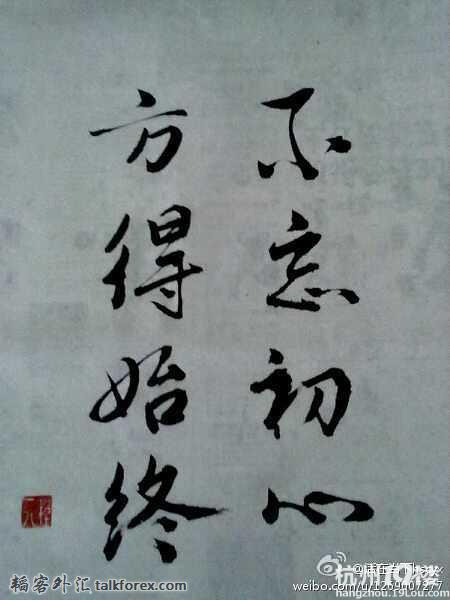 不忘初心
方得始终
韬客外汇 talkforex.com
杭州19楼
weibo.com/u/1269007277
hangzhou.19lou.com